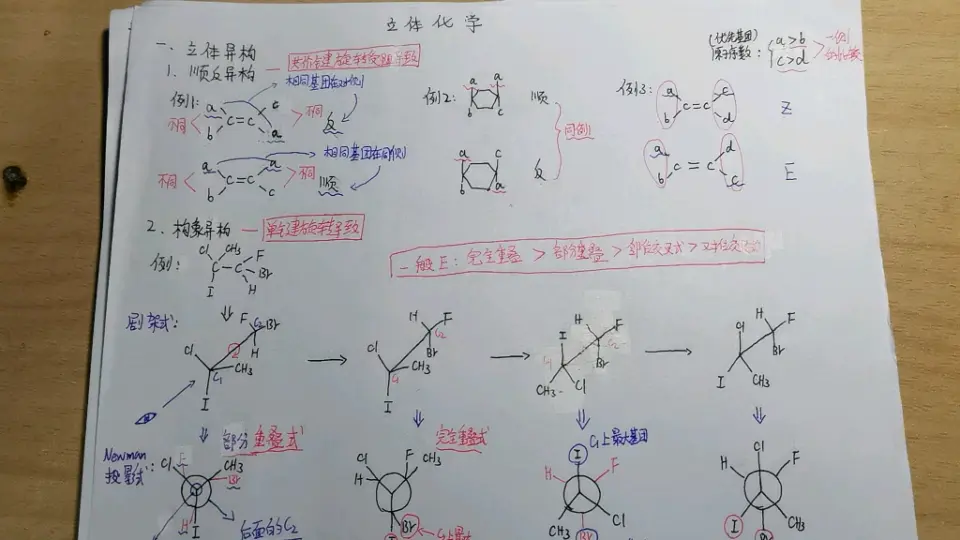 立体化学
一、立体异构
1. 顺反异构 — 共价键旋转受阻导致
(优先基团)
原子序数: a>b
c>d
例1: a b C=C c a
不同 不同 反
相同基团在对侧
a b C=C a c
不同 不同 顺
相同基团在同侧
例2: a a b c 顺
a c b a 反
同例1
例3: a b C=C c d Z
a b C=C d c E
2. 构象异构 — 单键旋转导致
例: Cl CH₃ C—C F Br I H
一般E: 完全重叠 > 部分重叠 > 邻位交叉式 >
锯架式:
F C₂ Br H Cl C₁ CH₃ I
H F C₂ Br Cl C₁ CH₃ I
H F C₂ Br I C₁ CH₃ Cl
H F Br Cl I CH₃
部分重叠式
完全重叠式
C₁上最大基团
Newman
投影式:
Cl F CH₃ Br H I
H F CH₃ Cl Br I
I H F CH₃ Cl Br
Cl H F I CH₃
后面的C₂